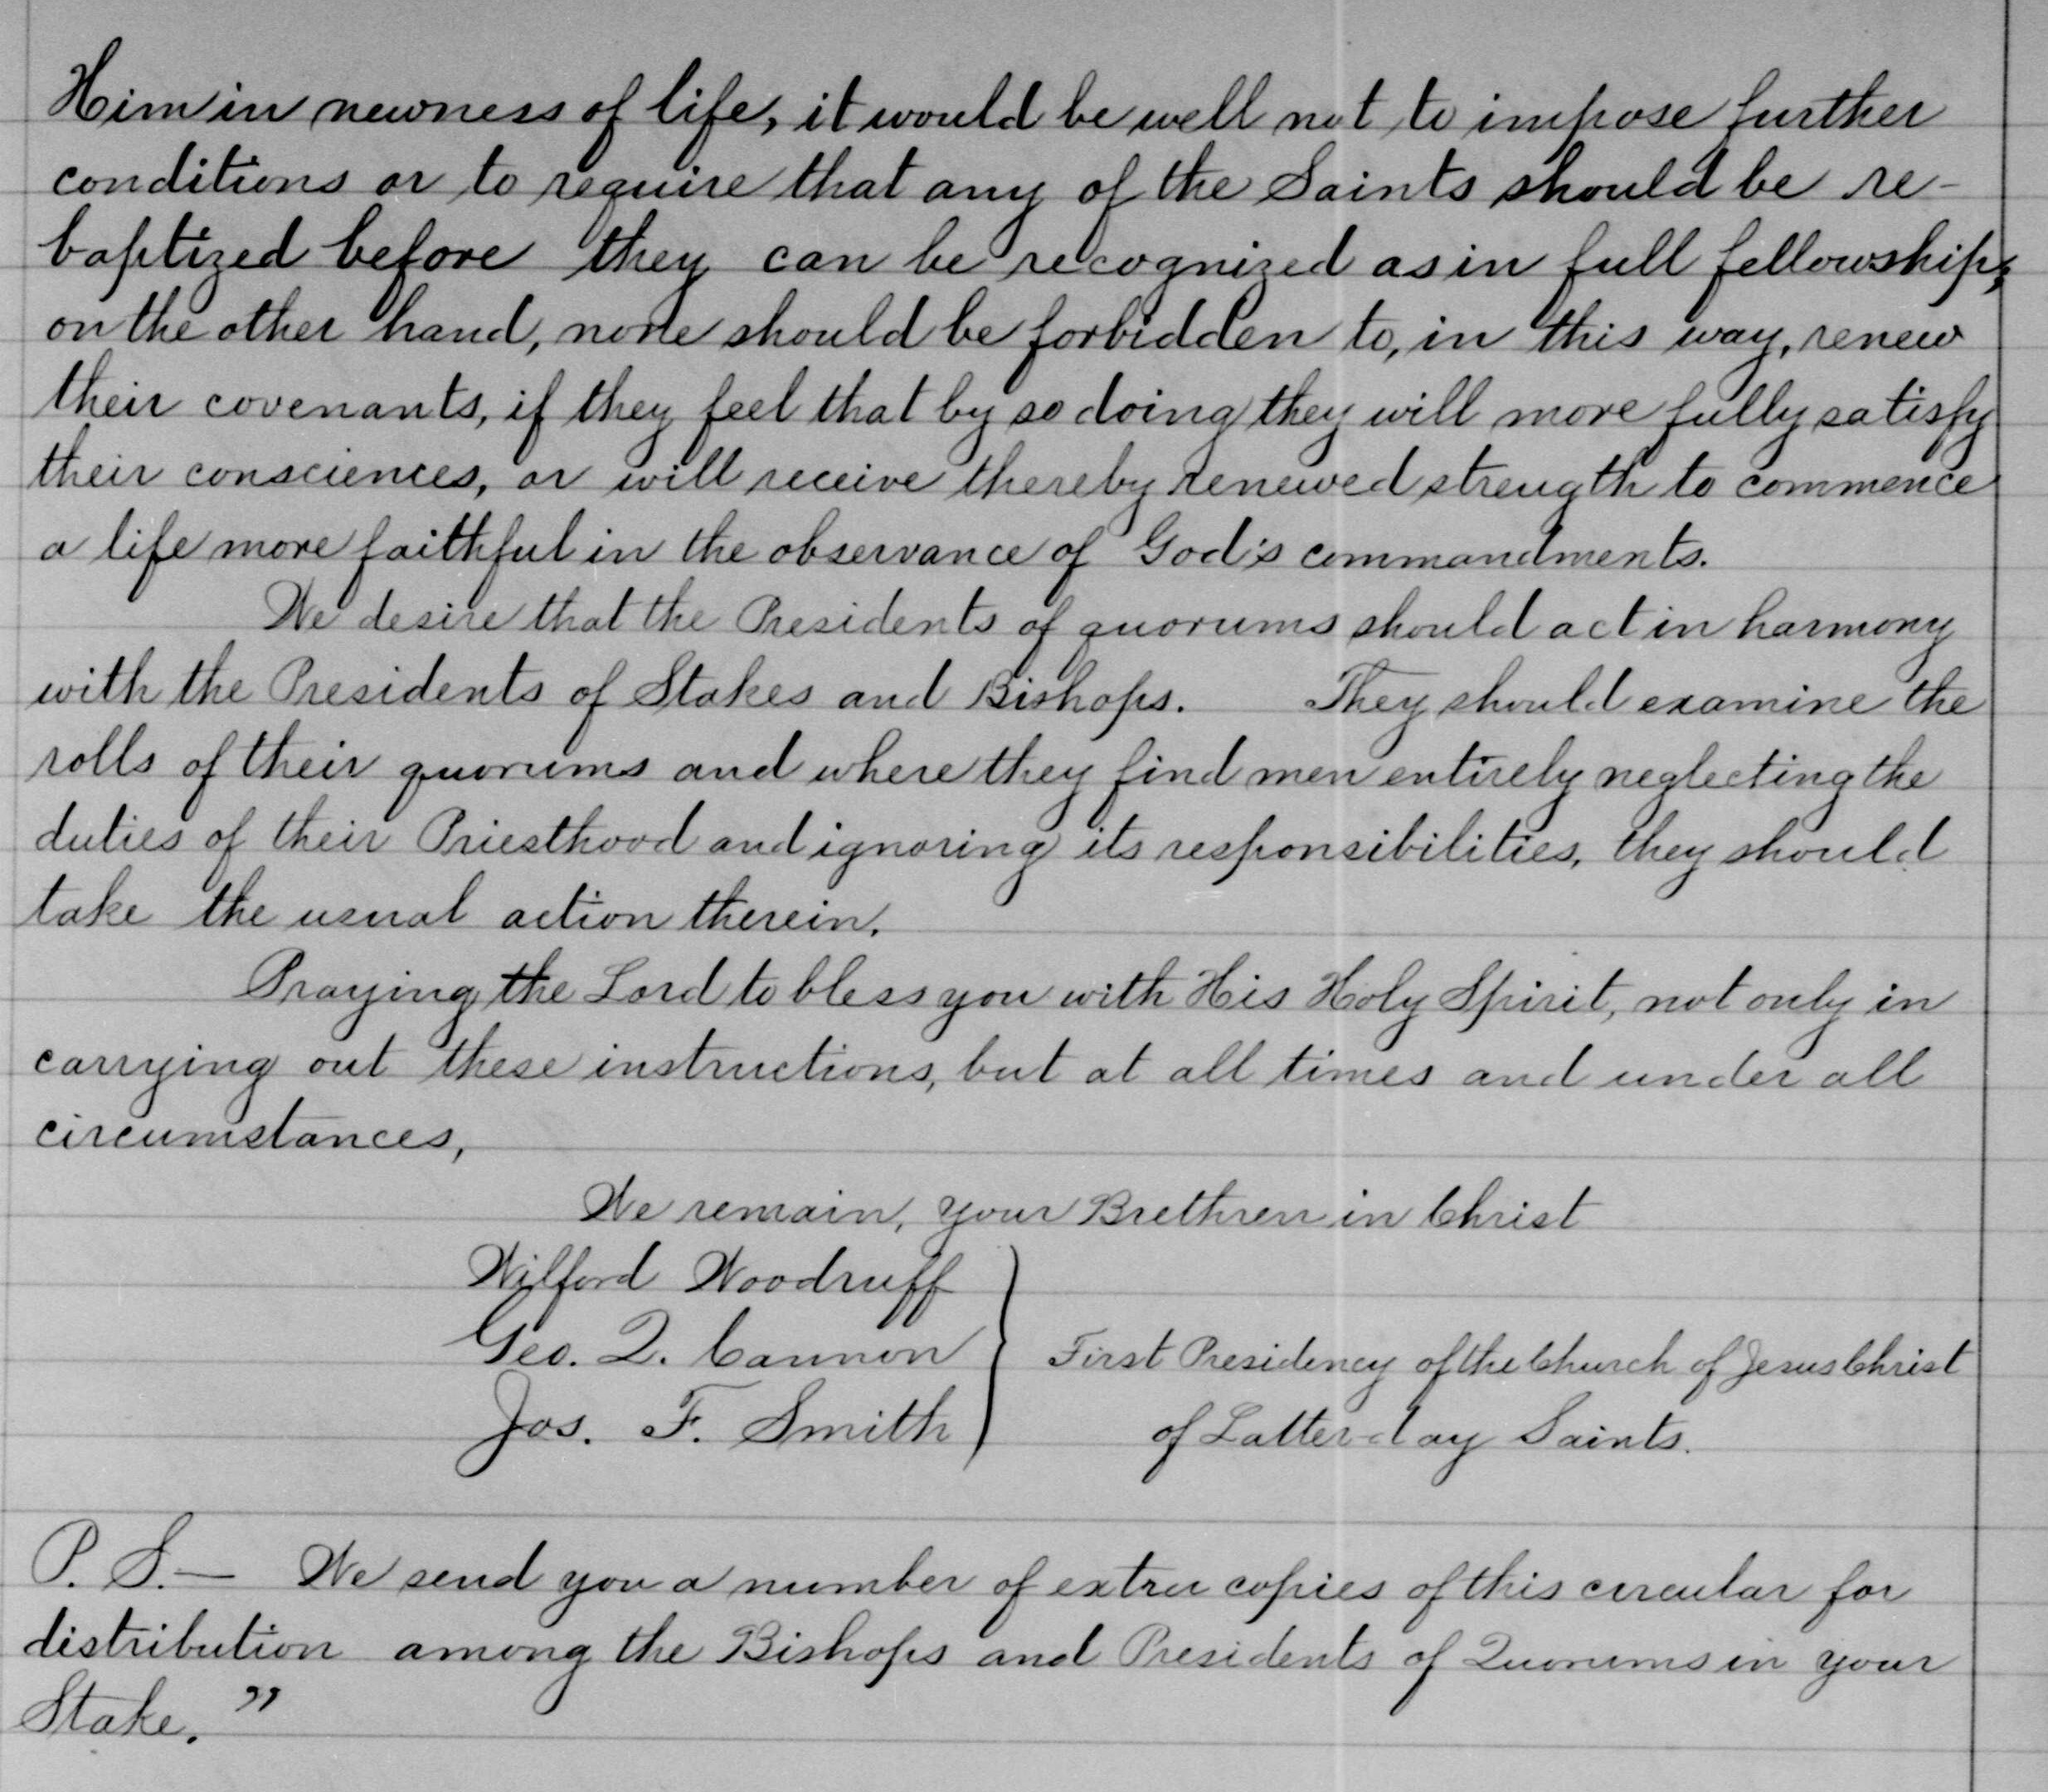 Him in newness of life, it would be well not to impose further
conditions or to require that any of the Saints should be re-
baptized before they can be recognized as in full fellowship;
on the other hand, none should be forbidden to, in this way, renew
their covenants, if they feel that by so doing they will more fully satisfy
their consciences, or will receive thereby renewed strength to commence
a life more faithful in the observance of God's commandments.
We desire that the Presidents of quorums should act in harmony
with the Presidents of Stakes and Bishops. They should examine the
rolls of their quorums and where they find men entirely neglecting the
duties of their Priesthood and ignoring its responsibilities, they should
take the usual action therein.
Praying the Lord to bless you with His Holy Spirit, not only in
carrying out these instructions, but at all times and under all
circumstances,
We remain, your Brethren in Christ
Wilford Woodruff
Geo. Q. Cannon
Jos. F. Smith
First Presidency of the Church of Jesus Christ
of Latter-day Saints.
P. S.— We send you a number of extra copies of this circular for
distribution among the Bishops and Presidents of Quorums in your
Stake."